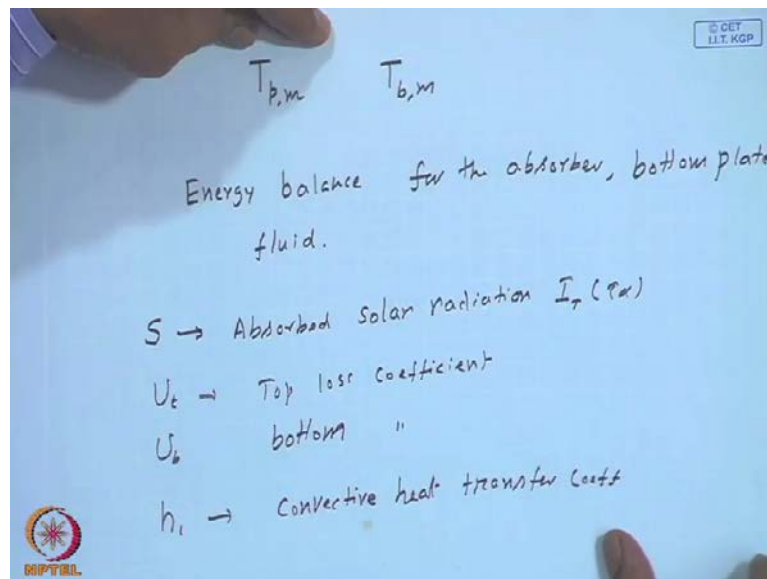 © CET
I.I.T. KGP
T_{p,m} T_{b,m}
Energy balance for the absorber, bottom plate
fluid.
S → Absorbed solar radiation I_T (τα)
U_t → Top loss coefficient
U_b bottom "
h_1 → Convective heat transfer coeff
NPTEL